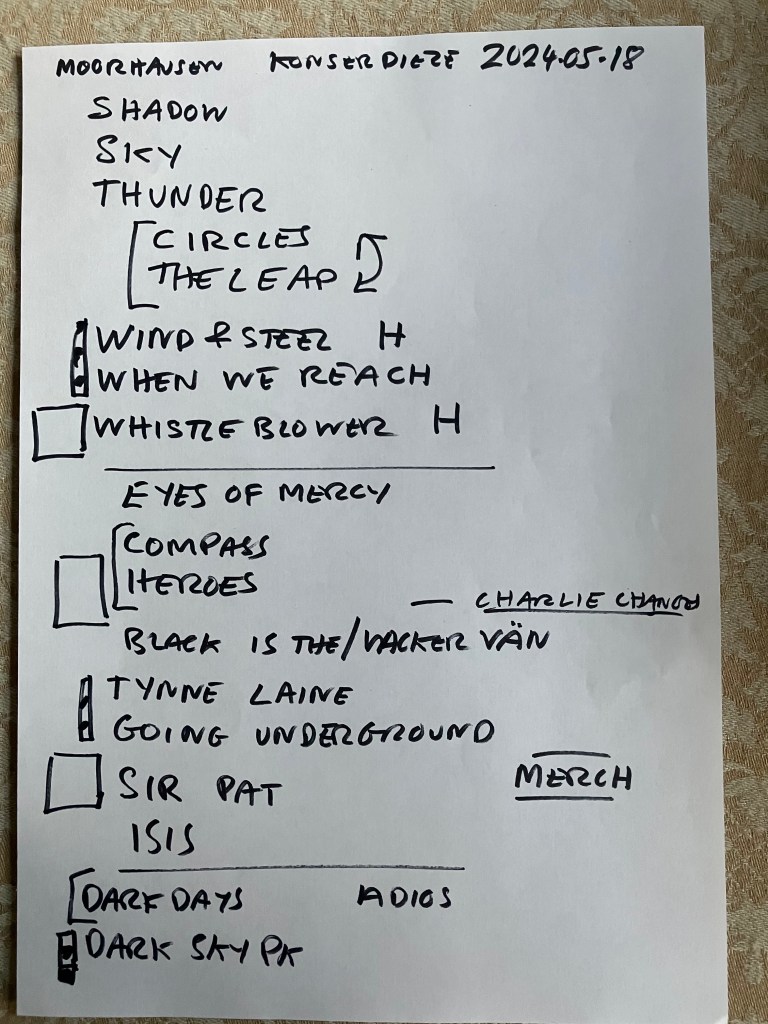 MOORHAUSEN KONSERDIELE 2024.05.18
SHADOW
SKY
THUNDER
CIRCLES
THE LEAP
WIND & STEEL H
WHEN WE REACH
WHISTLEBLOWER H
EYES OF MERCY
COMPASS
HEROES
— CHARLIE
BLACK IS THE/VACKER VÄN
TYNNE LAINE
GOING UNDERGROUND
MERCH
SIR PAT
ISIS
DARK DAYS ADIOS
DARK SKY PK